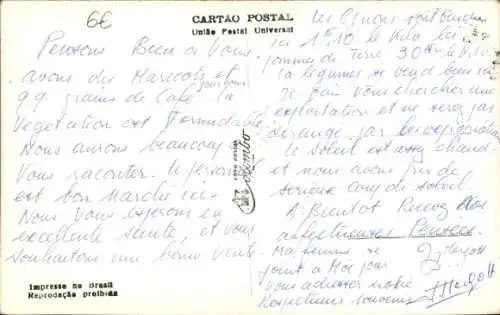 6€
CARTÃO POSTAL
União Postal Universal
Pensons Bien a Vous
avons du Haricots et
qq grains de Café toujours la
Vegetation est Formidable
Nous aurons beaucoup a
Vous raconter. le
est bon Marché ici.
Nous Vous esperons en
excellente Santé, et vous
souhaitons une bonne Vente
Impresso no Brasil
Reprodução proibida
Colombo
Les Ognons sont
ici 1 10 le Kilo les
pommes de Terre 30 le Kilo
la légumes se vend bien ici
Je vais Vous chercher une
exploitation et ne serez pas
derangé par les
le soleil est assez chaud
et nous avons pris de
serieux coup de soleil.
A Bientot Recevez Nos
affectueuses Pensées.
Ma femme se
joint a Moi pour
Vous adresser notre
Respectueux souvenir